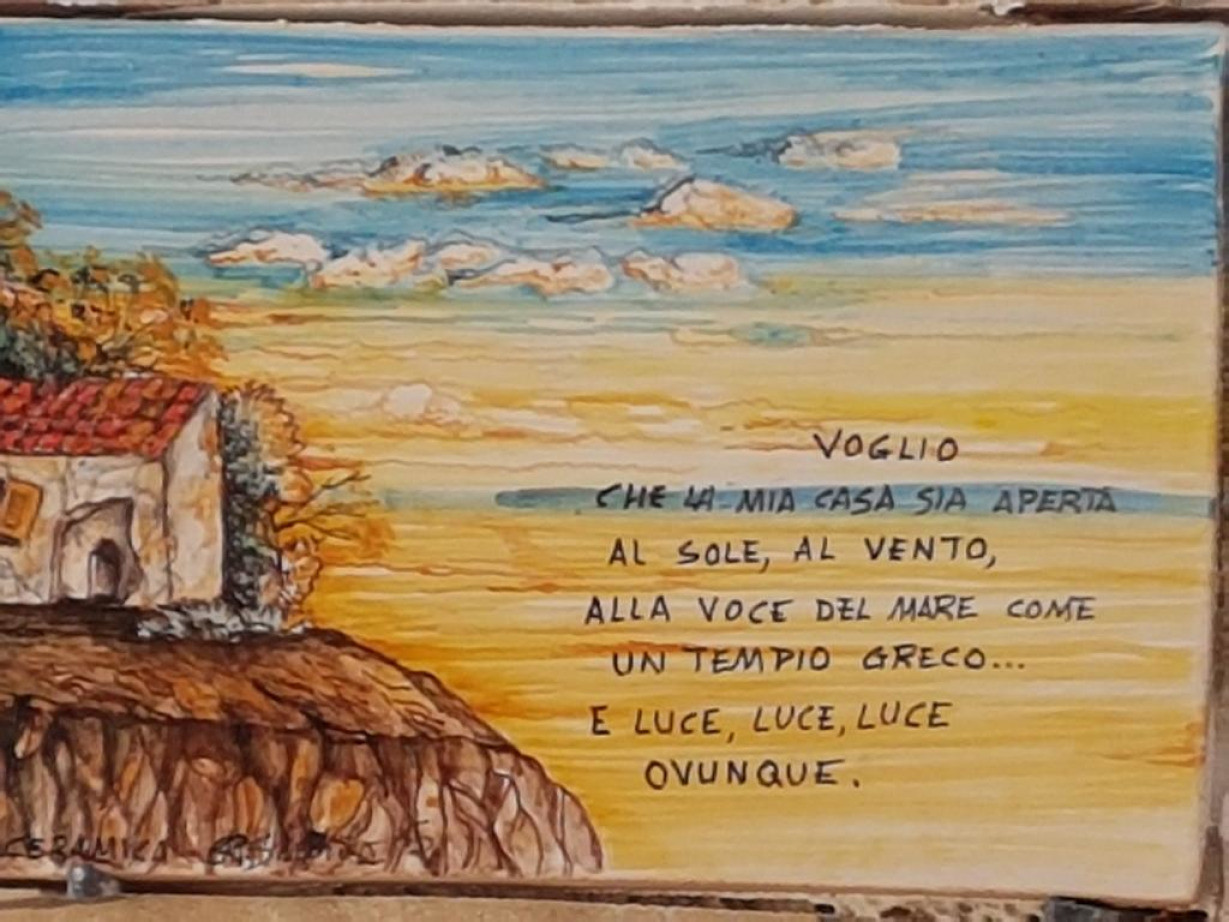 VOGLIO
CHE LA MIA CASA SIA APERTA
AL SOLE, AL VENTO,
ALLA VOCE DEL MARE COME
UN TEMPIO GRECO...
E LUCE, LUCE, LUCE
OVUNQUE.
CERAMICA